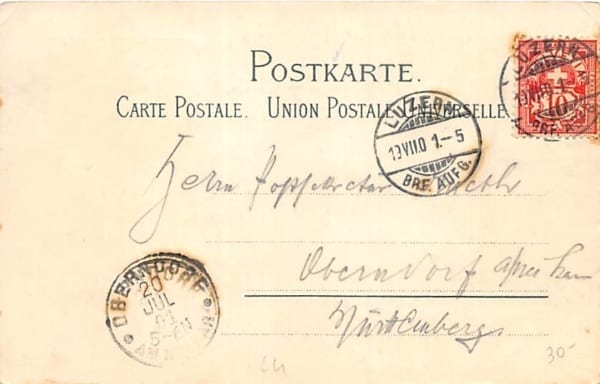 POSTKARTE.
CARTE POSTALE. UNION POSTALE UNIVERSELLE
LUZERN
LUZERN
19 VII.0 1.-5
BRF. AUFG.
10
Herrn Postsekretär
Oberndorf
Württemberg
OBERNDORF
20
JUL
5-6N
AM
30-